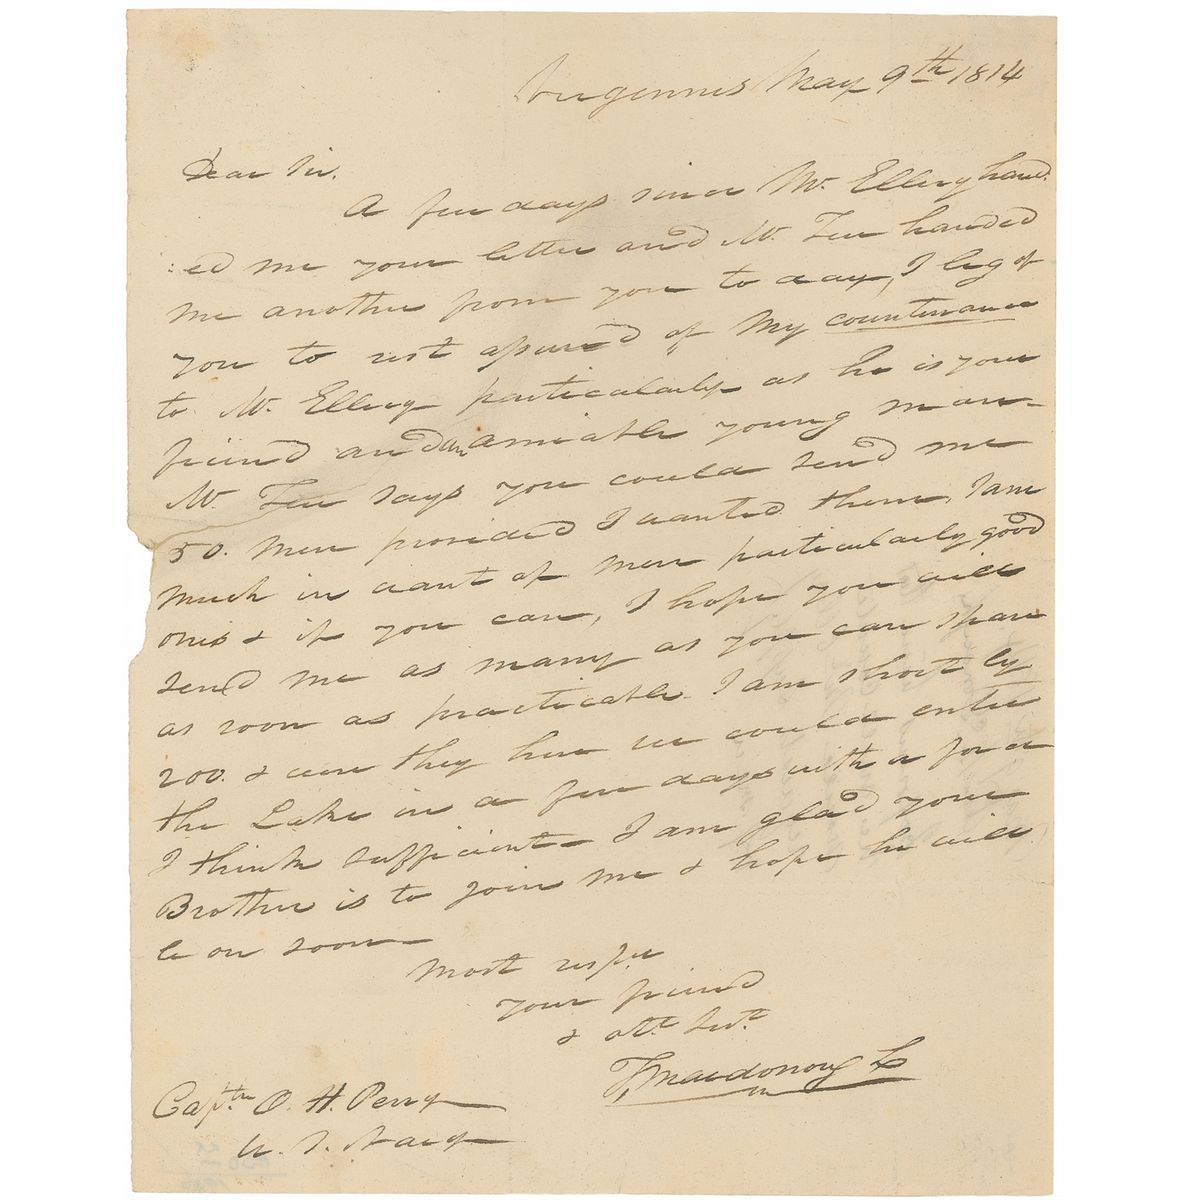 Vergennes May 9th 1814
Dear Sir.
A few days since Mr. Ellery hand
:ed me your letter and Mr. Tew handed
me another from you to day, I beg of
you to rest assured of my countenance
to Mr. Ellery particularly as he is your
friend and an amiable young man–
Mr. Tew says you could send me
50. men provided I wanted them, I am
much in want of men particularly good
ones & if you can, I hope you will
send me as many as you can spare
as soon as practicable. I am short by
200. & were they here we could enter
the Lake in a few days with a force
I think sufficient– I am glad your
Brother is to join me & hope he will
be on soon–
Most respy
your friend
& obt. Svt.
T, Macdonough
Captn O. H. Perry
U. S. Navy